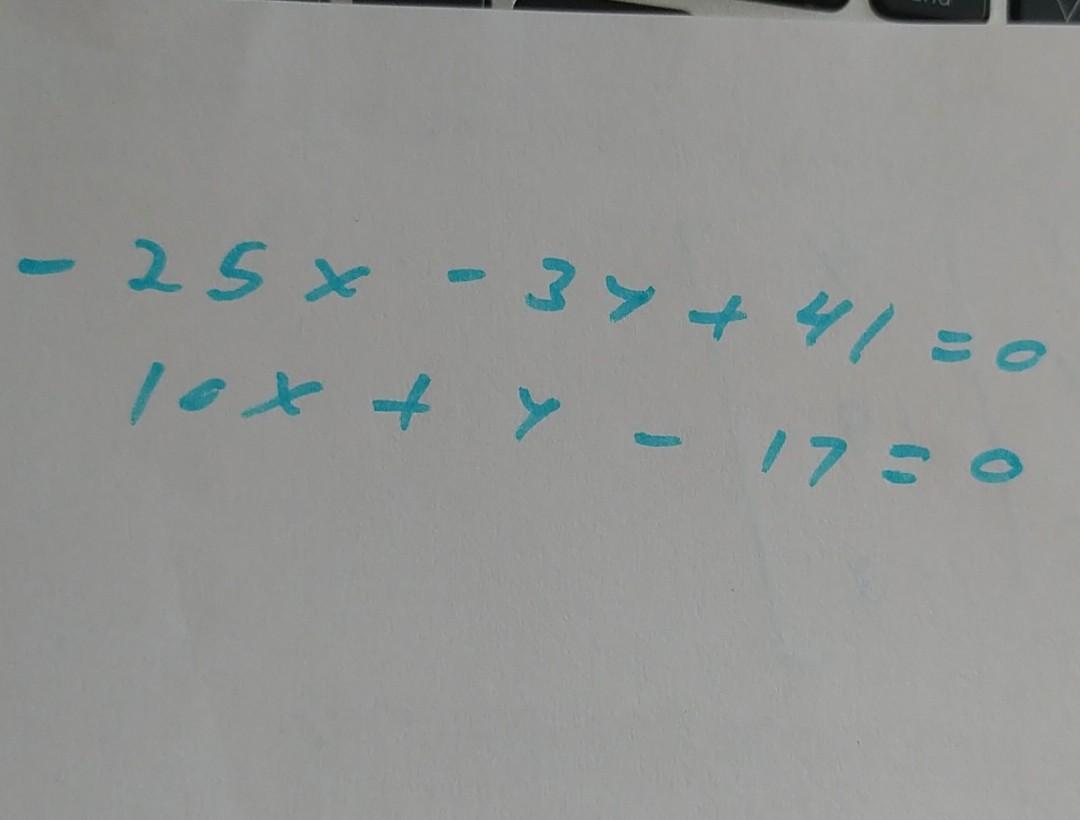 - 25x - 3y + 41 = 0
10x + y - 17 = 0